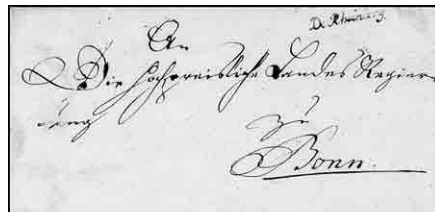 De Rheinberg.
An
Die Hochpreisliche Landes Regier-
ung
zu
Bonn.